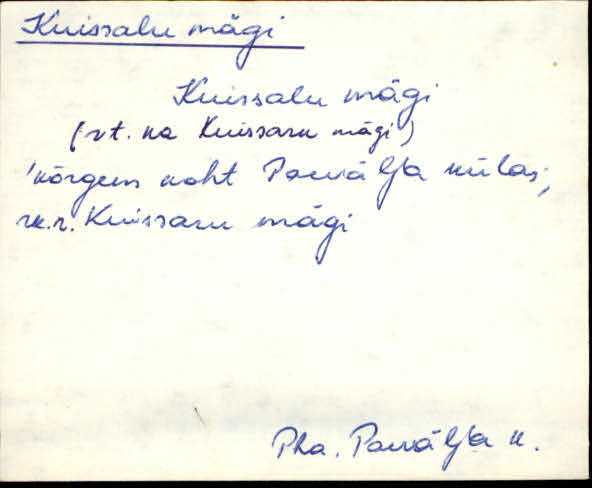 Kuissalu mägi
Kuissalu mägi
(vt. ka Kuissaru mägi)
'kõrgem koht Parvälja külas;
rk.r. Kuissaru mägi
Pha. Parvälja k.